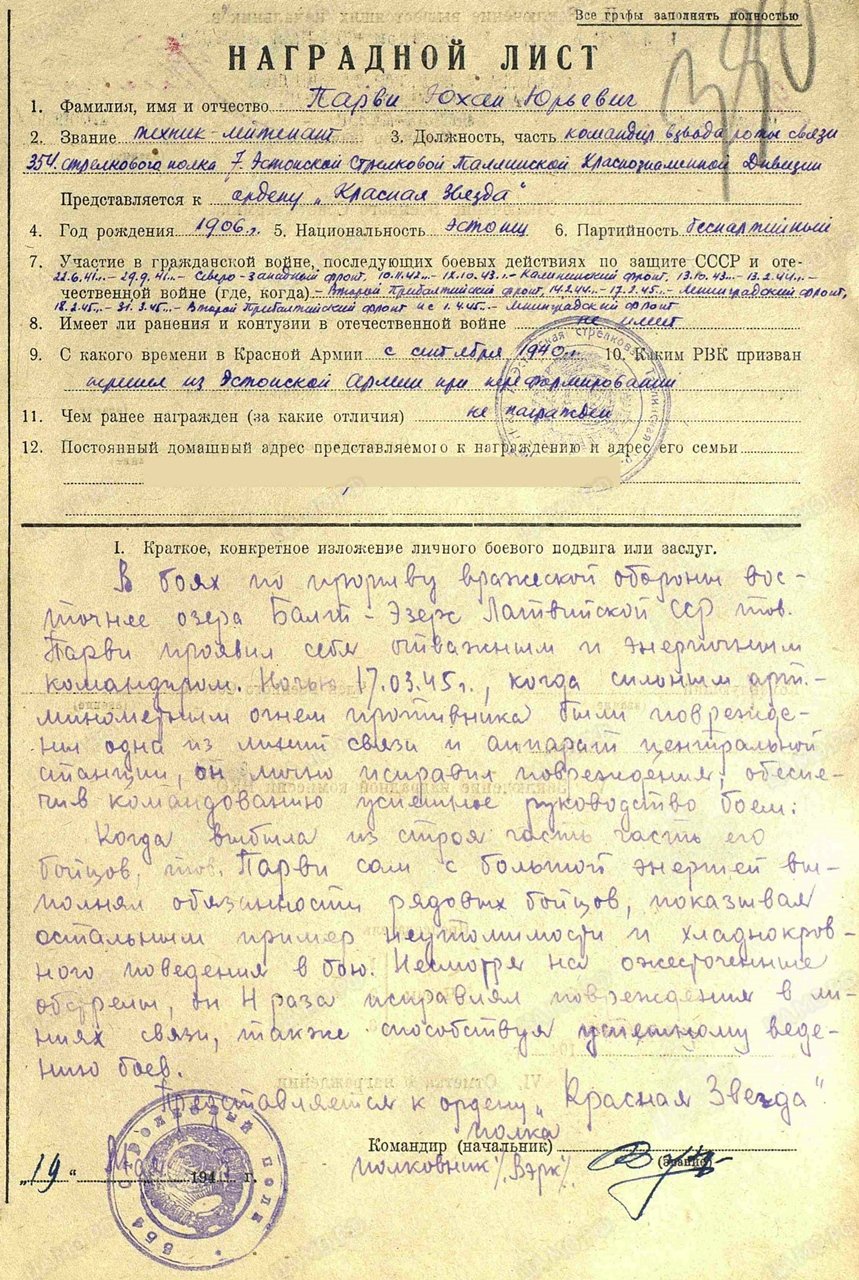 Все графы заполнять полностью
НАГРАДНОЙ ЛИСТ
1. Фамилия, имя и отчество Парви Юхан Юрьевич
2. Звание техник-литенант 3. Должность, часть командир взвода роты связи
354. стрелкового полка 7. Эстонской Стрелковой Таллинской Краснознаменной Дивизии
Представляется к ордену „Красная Звезда“
4. Год рождения 1906 г. 5. Национальность Эстонц 6. Партийность беспартийный
7. Участие в гражданской войне, последующих боевых действиях по защите СССР и оте-
22.6.41. - 29.9.41. - Северо-Западный фронт, 10.11.42. - 12.10.43. - Калининский фронт, 13.10.43. - 13.2.44. -
чественной войне (где, когда) - Второй Прибалтийский фронт, 14.2.44. - 17.2.45. - Ленинградский фронт,
18.2.45. - 31.3.45. - Второй Прибалтийский фронт и с 1.4.45. - Ленинградский фронт
8. Имеет ли ранения и контузии в отечественной войне не имеет
9. С какого времени в Красной Армии с сентября 1940 г. 10. Каким РВК призван
перешел из Эстонской Армии при переформировании
11. Чем ранее награжден (за какие отличия) не награжден
12. Постоянный домашный адрес представляемого к награждению и адрес его семьи
I. Краткое, конкретное изложение личного боевого подвига или заслуг.
В боях по прорыву вражеской обороны вос-
точнее озера Балт-Эзерс Латвийской ССР тов.
Парви проявил себя отважным и энергичным
командиром. Ночью 17.03.45 г., когда сильным арт.-
минометным огнем противника были поврежде-
ны одна из линий связи и аппарат центральной
станции, он лично исправил повреждения, обеспе-
чив командованию успешное руководство боем.
Когда выбыла из строя часть часть его
бойцов, тов. Парви сам с большой энергией вы-
полнял обязанности рядовых бойцов, показывая
остальным пример неутомимости и хладнокров-
ного поведения в бою. Несмотря на ожесточенные
обстрелы, он 4 раза исправлял повреждения в ли-
ниях связи, также способствуя успешному веде-
нию боев.
Представляется к ордену „Красная Звезда“.
полка
Командир (начальник)
полковник /Вэрк/.
(звание)
„19“ Мая 194 г.